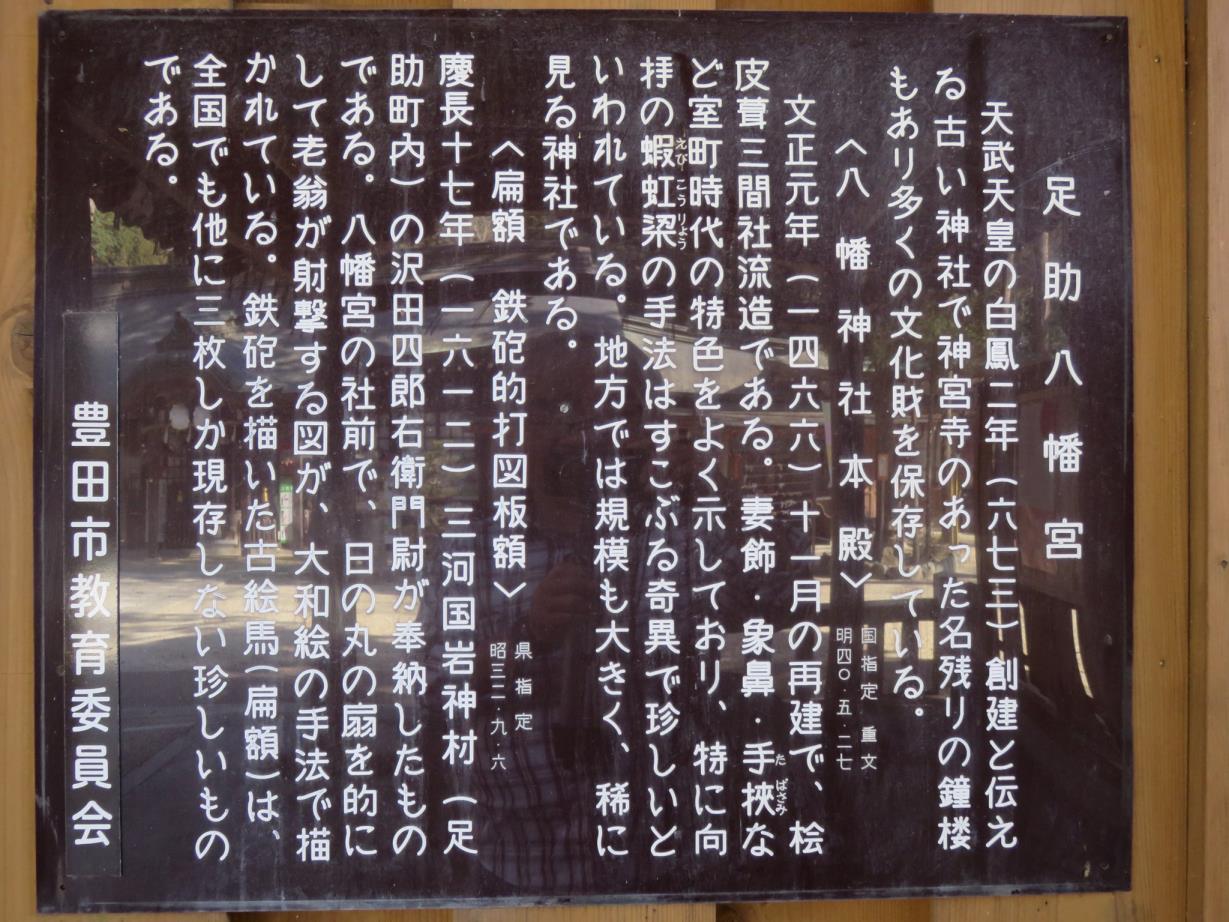 足助八幡宮
天武天皇の白鳳二年（六七三）創建と伝え
る古い神社で神宮寺のあった名残りの鐘楼
もあり多くの文化財を保存している。
〈八幡神社本殿〉
国指定重文
明四〇・五・二七
文正元年（一四六六）十一月の再建で、桧
皮葺三間社流造である。妻飾・象鼻・手挾な
たばさみ
ど室町時代の特色をよく示しており、特に向
拝の蝦虹梁の手法はすこぶる奇異で珍しいと
えびこうりょう
いわれている。地方では規模も大きく、稀に
見る神社である。
〈扁額　鉄砲的打図板額〉
県指定
昭三二・九・六
慶長十七年（一六一二）三河国岩神村（足
助町内）の沢田四郎右衛門尉が奉納したもの
である。八幡宮の社前で、日の丸の扇を的に
して老翁が射撃する図が、大和絵の手法で描
かれている。鉄砲を描いた古絵馬（扁額）は、
全国でも他に三枚しか現存しない珍しいもの
である。
豊田市教育委員会